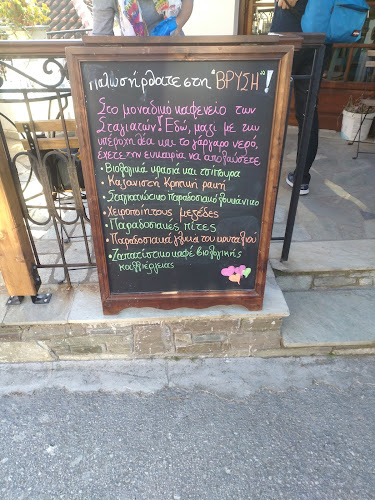 Καλωσήρθατε στη "ΒΡΥΣΗ"!
Στο μοναδικό καφενείο των
Σταγιατών! Εδώ, μαζί με την
υπέροχη θέα και το γάργαρο νερό,
έχετε την ευκαιρία να απολαύσετε
• Βιολογικά κρασιά και τσίπουρα
• Καζανιστή Κρητική ρακή
• Σταγιατιώτικο παραδοσιακό λουκάνικο
• Χειροποίητους μεζέδες
• Παραδοσιακές πίτες
• Παραδοσιακά γλυκά του κουταλιού
• Ζαπατίστικο καφέ βιολογικής
καλλιέργειας